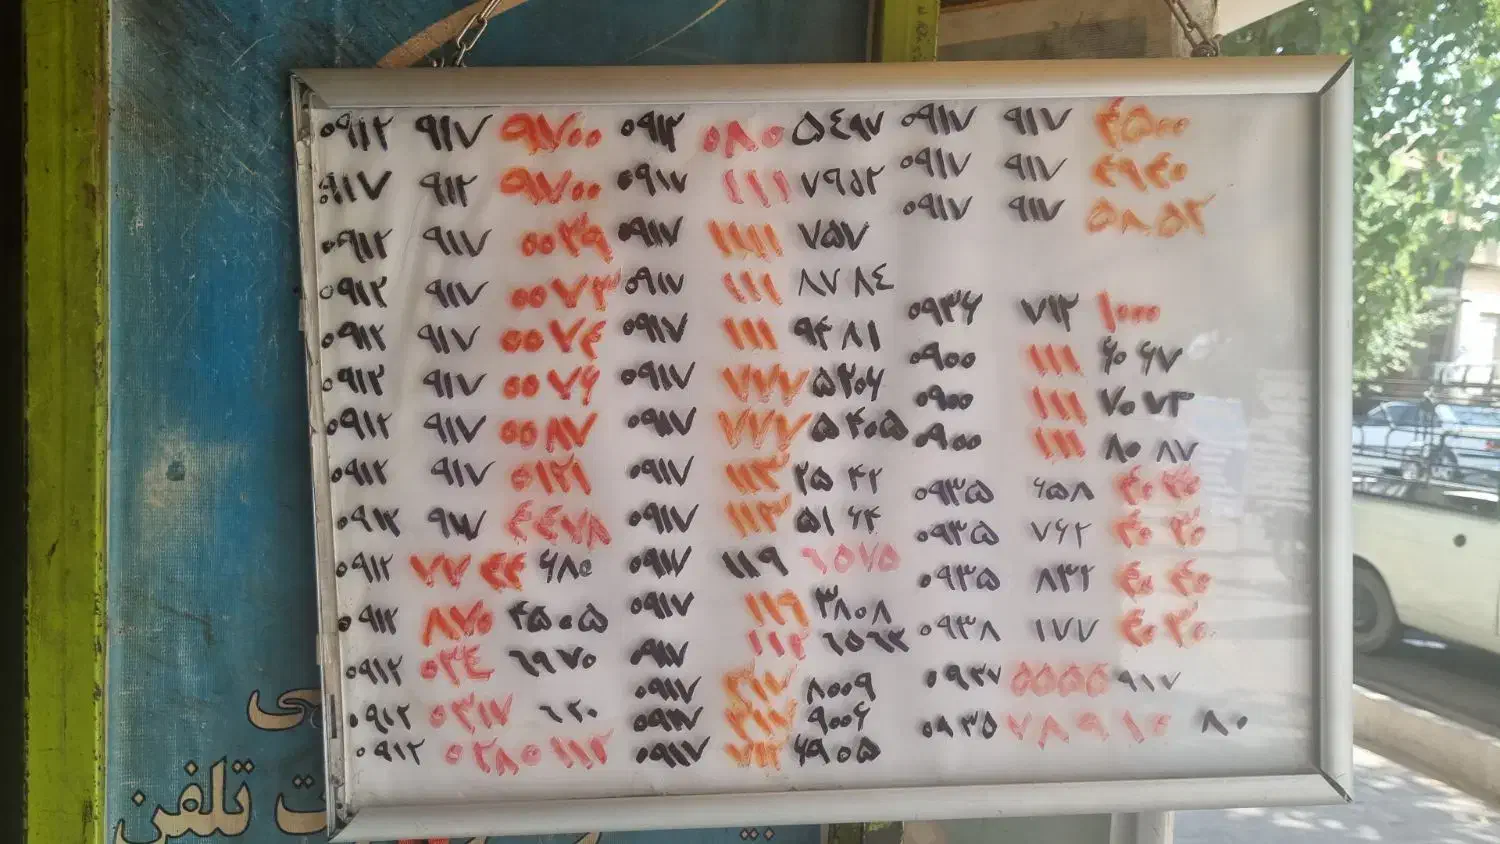 ۰۹۱۲ ۹۱۷ ۹۷۰۰
۰۹۱۷ ۹۱۲ ۹۷۰۰
۰۹۱۲ ۹۱۷ ۰۰۳۹
۰۹۱۲ ۹۱۷ ۰۰۷۳
۰۹۱۲ ۹۱۷ ۰۰۷۴
۰۹۱۲ ۹۱۷ ۰۰۷۶
۰۹۱۲ ۹۱۷ ۰۰۸۷
۰۹۱۲ ۹۱۷ ۰۱۲۱
۰۹۱۲ ۹۱۷ ۴۴۷۸
۰۹۱۲ ۷۷ ۴۴ ۶۸۰
۰۹۱۲ ۸۷۰ ۴۵۰۵
۰۹۱۲ ۰۳۴ ۶۹۷۰
۰۹۱۲ ۰۳۱۷ ۶۲۰
۰۹۱۲ ۰۲۸۰ ۱۱۲
۰۹۱۲ ۰۸۰ ۵۴۹۷
۰۹۱۷ ۱۱۱ ۷۹۵۲
۰۹۱۷ ۱۱۱۱ ۷۵۷
۰۹۱۷ ۱۱۱ ۸۷ ۸۴
۰۹۱۷ ۱۱۱ ۹۴۸۱
۰۹۱۷ ۷۷۷ ۵۲۰۶
۰۹۱۷ ۷۷۷ ۵۴۰۵
۰۹۱۷ ۱۱۳ ۲۵ ۴۲
۰۹۱۷ ۱۱۳ ۵۱ ۶۴
۰۹۱۷ ۱۱۹ ۶۵۷۵
۰۹۱۷ ۱۱۹ ۳۸۰۸
۰۹۱۷ ۱۱۲ ۶۵۶۳
۰۹۱۷ ۳۱۷ ۸۰۰۹
۰۹۱۷ ۳۱۷ ۹۰۰۶
۰۹۱۷ ۷۱۲ ۶۹۰۵
۰۹۱۷ ۹۱۷ ۴۵۰۰
۰۹۱۷ ۹۱۷ ۴۹۴۰
۰۹۱۷ ۹۱۷ ۵۸۵۲
۰۹۳۶ ۷۱۲ ۱۰۰۰
۰۹۰۰ ۱۱۱ ۶۰ ۶۷
۰۹۰۰ ۱۱۱ ۷۰ ۷۳
۰۹۰۰ ۱۱۱ ۸۰ ۸۷
۰۹۳۵ ۶۵۸ ۴۰ ۲۰
۰۹۳۵ ۷۶۲ ۴۰ ۲۰
۰۹۳۵ ۸۳۲ ۴۰ ۴۰
۰۹۳۸ ۱۷۷ ۴۰ ۲۰
۰۹۳۷ ۵۵۵۵ ۹۱۷
۰۹۳۵ ۷۸۹ ۱۰ ۸۰
ت تلفن